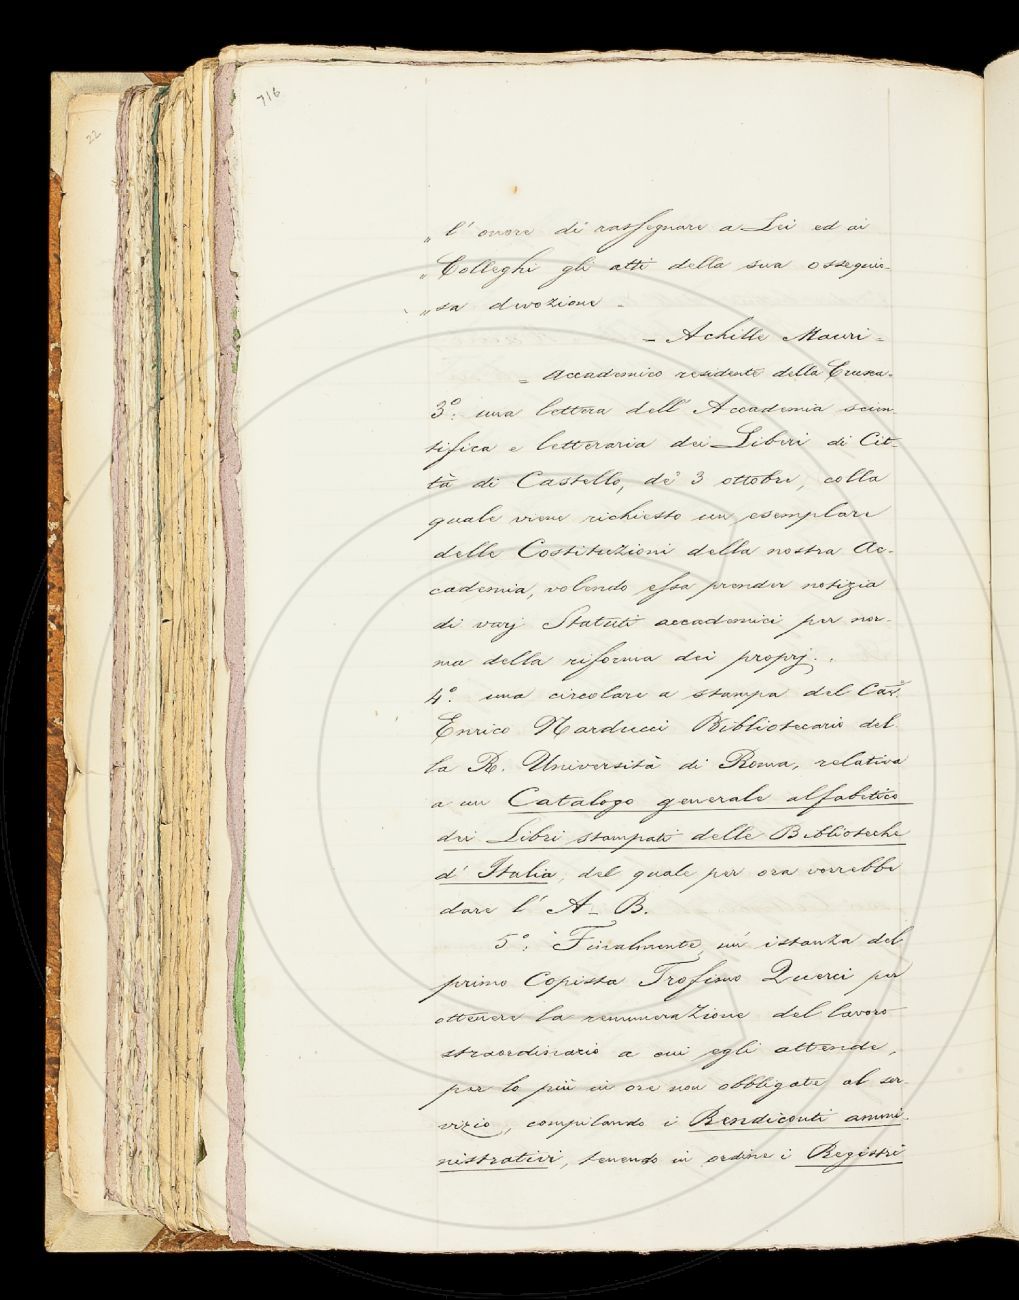 716
22
„ l' onore di rassegnare a Lei ed ai
„ Colleghi gli atti della sua ossequio-
„ sa devozione -
- Achille Mauri -
- Accademico residente della Crusca -
3º: una lettera dell' Accademia scien-
tifica e letteraria dei Liberi di Cit-
tà di Castello, de' 3 ottobre, colla
quale viene richiesto un esemplare
delle Costituzioni della nostra Ac-
cademia, volendo essa prender notizia
di varj Statuti accademici per nor-
ma della riforma dei proprj.
4º: una circolare a stampa del Cav.
Enrico Narducci Bibliotecario del-
la R. Università di Roma, relativa
a un Catalogo generale alfabetico
dei Libri stampati delle Biblioteche
d' Italia, del quale per ora vorrebbe
dare l' A-B.
5º: Finalmente, un' istanza del
primo Copista Trofimo Querci per
ottenere la remunerazione del lavoro
straordinario a cui egli attende,
per lo più in ore non obbligate al ser-
vizio, compilando i Rendiconti ammi-
nistrativi, tenendo in ordine i Registri